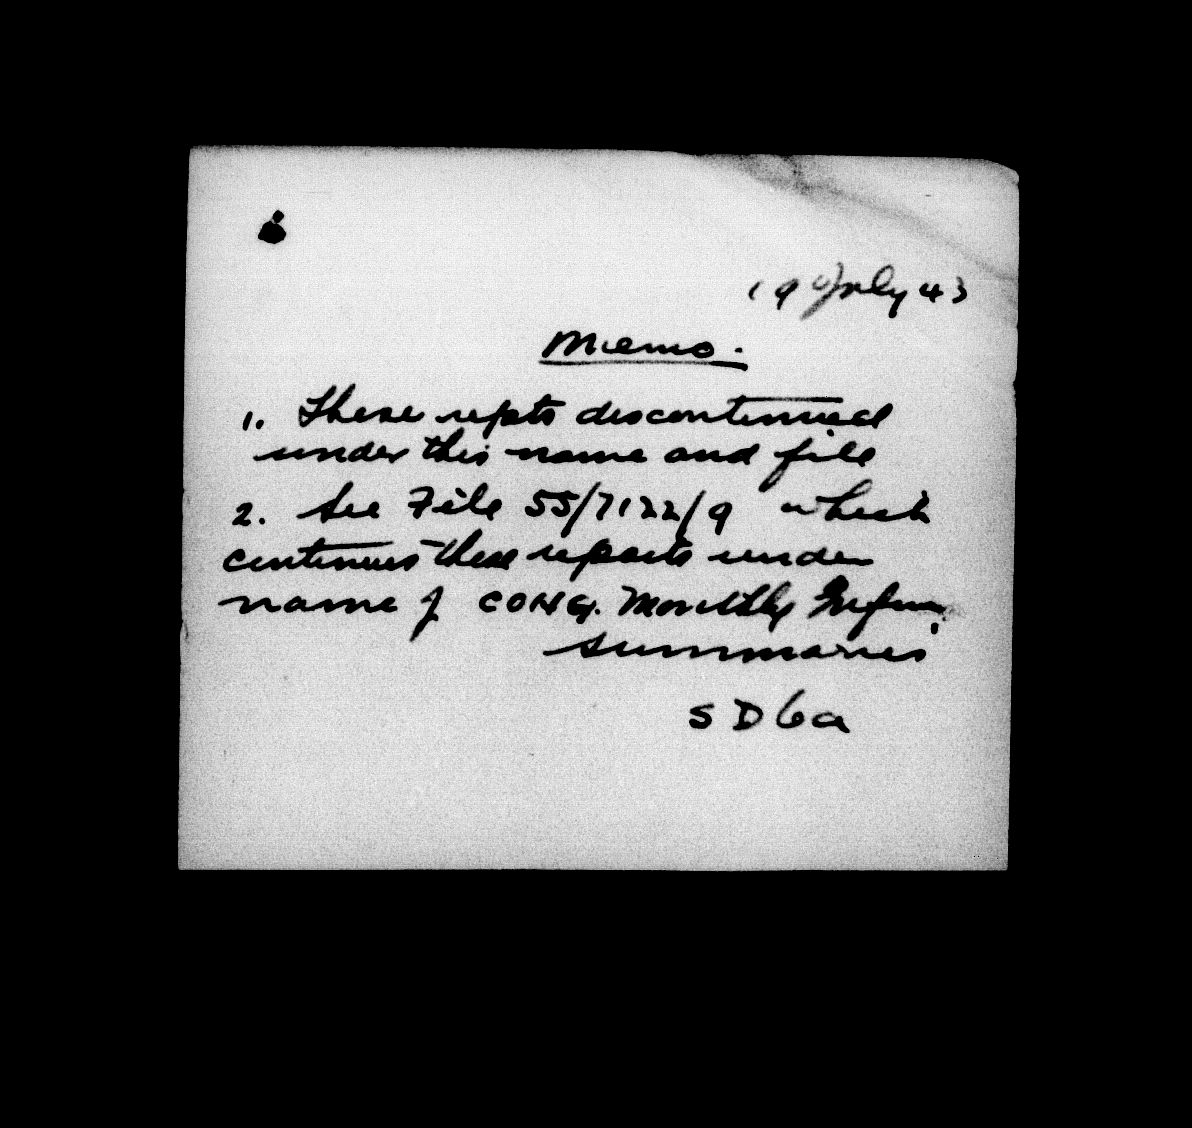 19 July 43
Memo.
1. These repts discontinued
under this name and file
2. See File 55/7122/9 which
continues these reports under
name of CONG. Monthly Inform.
summaries
SD6a